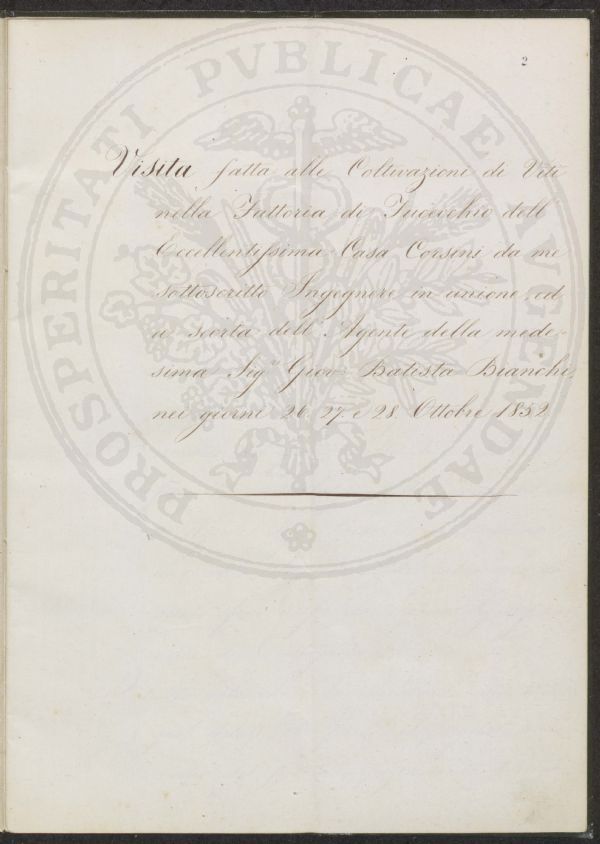 2
PROSPERITATI PVBLICAE AVGENDAE
Visita fatta alle Coltivazioni di Viti
nella Fattoria di Fucecchio dell'
Eccellentissima Casa Corsini da me
sottoscritto Ingegnere in unione, ed
a scorta dell' Agente della mede-
sima Sig.r Giov: Batista Bianchi,
nei giorni 26. 27 e 28. Ottobre 1852